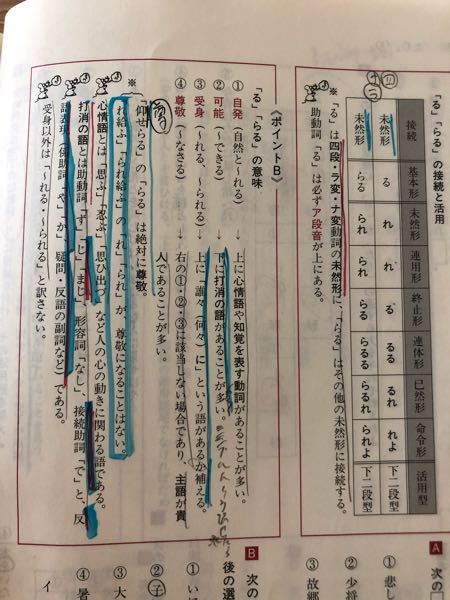 「る」「らる」の接続と活用
接続 基本形 未然形 連用形 終止形 連体形 已然形 命令形 活用型
未然形 る れ れ る るる るれ れよ 下二段型
未然形 らる られ られ らる らるる らるれ られよ 下二段型
※「る」は四段・ラ変・ナ変動詞の未然形に、「らる」はその他の未然形に接続する。
助動詞「る」は必ずア段音が上にある。
〈ポイントB〉
「る」「らる」の意味
①自発（自然と〜れる）→上に心情語や知覚を表す動詞があることが多い。
②可能（〜できる）→下に打消の語があることが多い。
③受身（〜れる、〜られる）→上に「誰々（何々）に」という語があるか補える。
④尊敬（〜なさる）→右の①・②・③に該当しない場合であり、主語が貴
人であることが多い。
※「仰せらる」の「らる」は絶対に尊敬。
「れ給ふ」「られ給ふ」の「れ」「られ」が、尊敬になることはない。
心情語とは「思ふ」「忍ぶ」「思ひ出づ」など人の心の動きに関わる語である。
打消の語とは助動詞「ず」「じ」「まじ」、形容詞「なし」、接続助詞「で」と、反
語表現（係助詞「や」「か」、疑問・反語の副詞など）である。
受身以外は「〜れる・〜られる」と訳さない。
A
次の
①悲し
②少将
③故郷
B
次の
後の選
②子
③大
④暑
イ